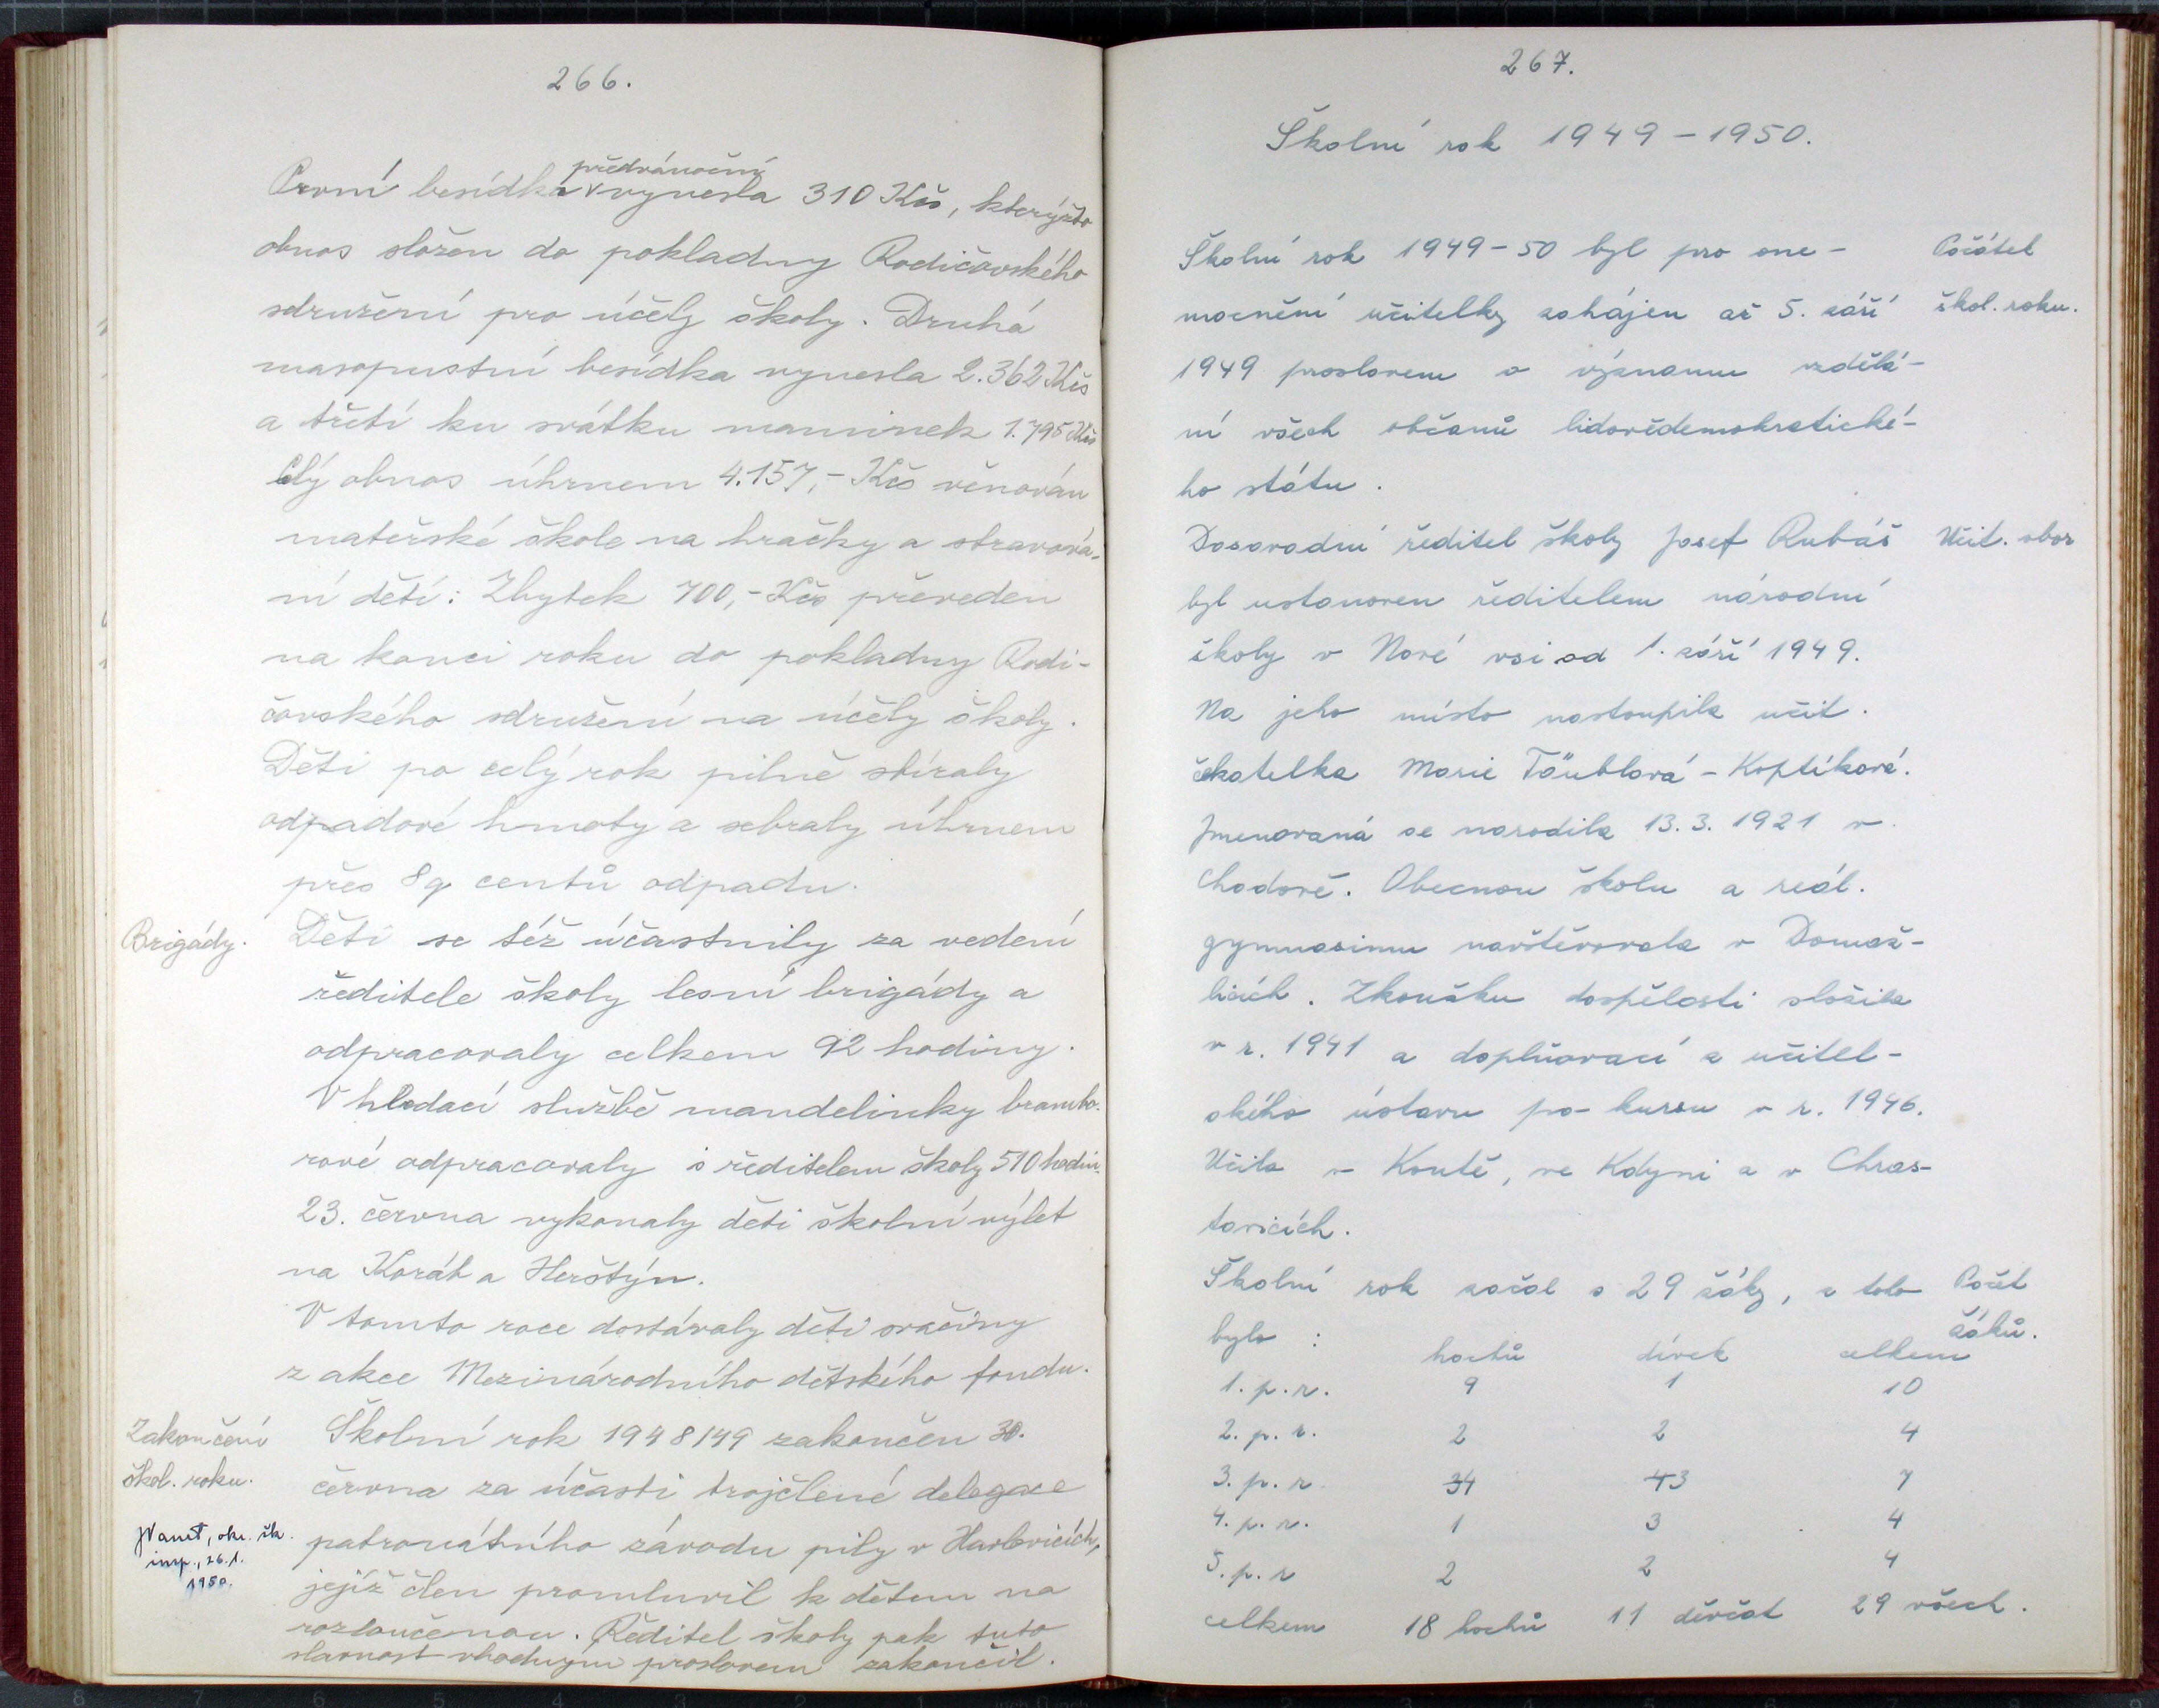 266.
První besídka předvánoční vynesla 310 Kčs, kterýžto
obnos složen do pokladny Rodičovského
sdružení pro účely školy. Druhá
masopustní besídka vynesla 2.362 Kčs
a třetí ku svátku maminek 1.795 Kčs
Celý obnos úhrnem 4.157,- Kčs věnován
mateřské škole na hračky a stravová-
ní dětí: Zbytek 700,- Kčs převeden
na konci roku do pokladny Rodi-
čovského sdružení na účely školy.
Děti po celý rok pilně sbíraly
odpadové hmoty a sebraly úhrnem
přes 8 q centů odpadu.
Brigády. Děti se též účastnily za vedení
ředitele školy lesní brigády a
odpracovaly celkem 92 hodiny.
V hledací službě mandelinky brambo-
rové odpracovaly s ředitelem školy 510 hodin.
23. června vykonaly děti školní výlet
na Koráb a Herštýn.
V tomto roce dostávaly děti svačiny
z akce Mezinárodního dětského fondu.
Zakončení Školní rok 1948/49 zakončen 30.
škol. roku. června za účasti trojčlené delegace
patronátního závodu pily v Havlovicích,
jejíž člen promluvil k dětem na
rozloučenou. Ředitel školy pak tuto
slavnost vhodným proslovem zakončil.
okr. šk.
insp., 26.1.
1950.
267.
Školní rok 1949-1950.
Školní rok 1949-50 byl pro one- Počátek
mocnění učitelky zahájen až 5. září škol. roku.
1949 proslovem o významu vzdělá-
ní všech občanů lidovědemokratické-
ho státu.
Dosavadní ředitel školy Josef Rubáš Učit. sbor
byl ustanoven ředitelem národní
školy v Nové vsi od 1. září 1949.
Na jeho místo nastoupila učit.
čekatelka Marie Täublová-Koptíková.
Jmenovaná se narodila 13.3. 1921 v
Chodově. Obecnou školu a reál.
gymnasium navštěvovala v Domaž-
licích. Zkoušku dospělosti složila
v r. 1941 a doplňovací z učitel-
ského ústavu po kursu v r. 1946.
Učila v Koutě, ve Kdyni a v Chras-
tavicích.
Školní rok začal s 29 žáky, z toho Počet
bylo: žáků.
hochů dívek celkem
1. p. r. 9 1 10
2. p. r. 2 2 4
3. p. r. 34 43 7
4. p. r. 1 3 4
5. p. r 2 2 4
celkem 18 hochů 11 děvčat 29 všech.